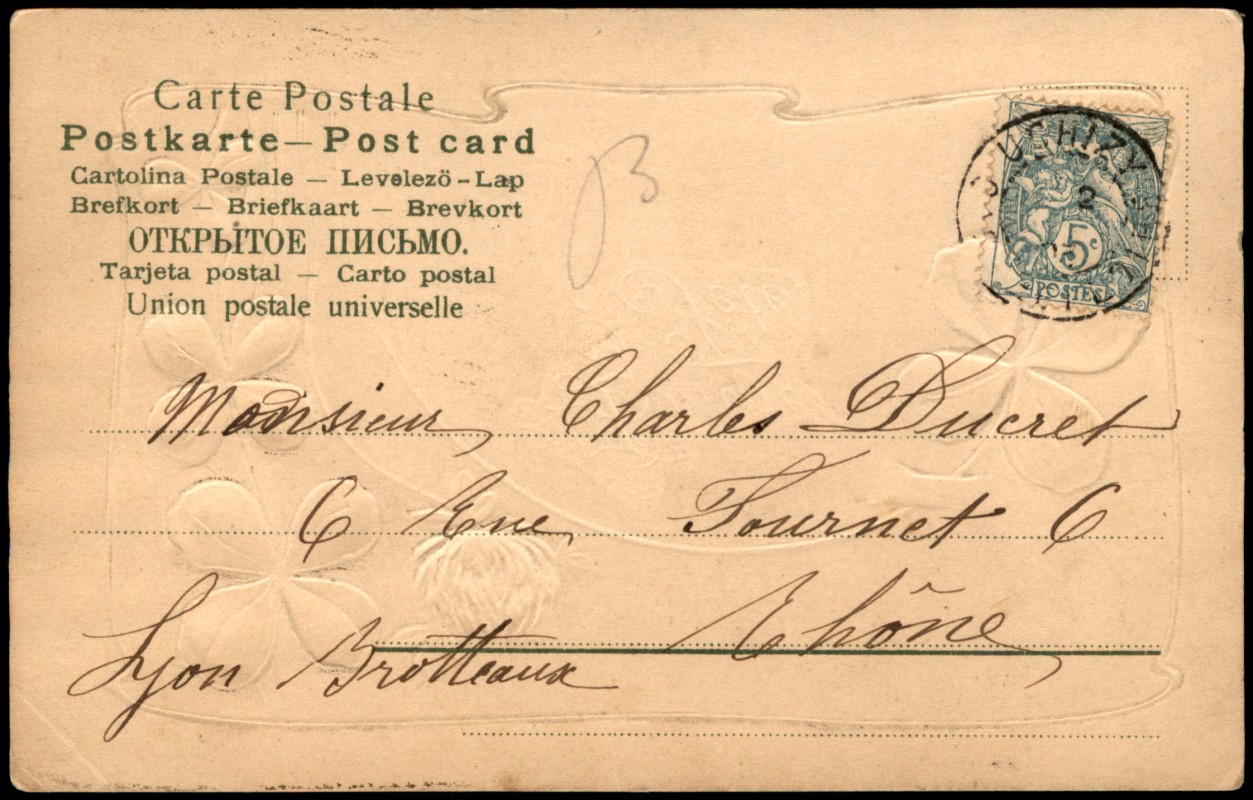 Carte Postale
Postkarte — Post card
Cartolina Postale — Levelezö - Lap
Brefkort — Briefkaart — Brevkort
ОТКРЫТОЕ ПИСЬМО.
Tarjeta postal — Carto postal
Union postale universelle
B
UCHIZY
2
5c
POSTES
Monsieur Charles Ducret
6 Rue Tournet 6
Lyon Brotteaux Rhône